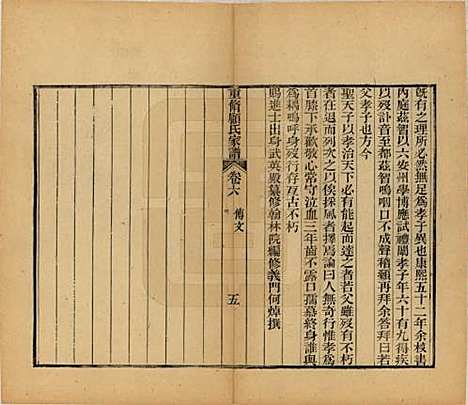 既有之理所必然無足為孝子異也康熙五十二年余校書
內庭茲智以六安州學博應試禮闈孝子年六十有九得疾
以歿訃音至都茲智嗚咽口不成聲稽顙再拜余答拜曰若
父孝子也方今
聖天子以孝治天下必有能起而達之者若父雖歿有不朽
者在退而列次之以俟採風者擇焉論曰人無奇行惟孝為
首膝下承歡敬心常守泣血三年齒不露口孺慕終身誰與
為耦嗚呼身歿行存亙古不朽
賜進士出身武英殿纂修翰林院編修義門何焯撰
重脩顧氏家譜
卷六
傳文
五